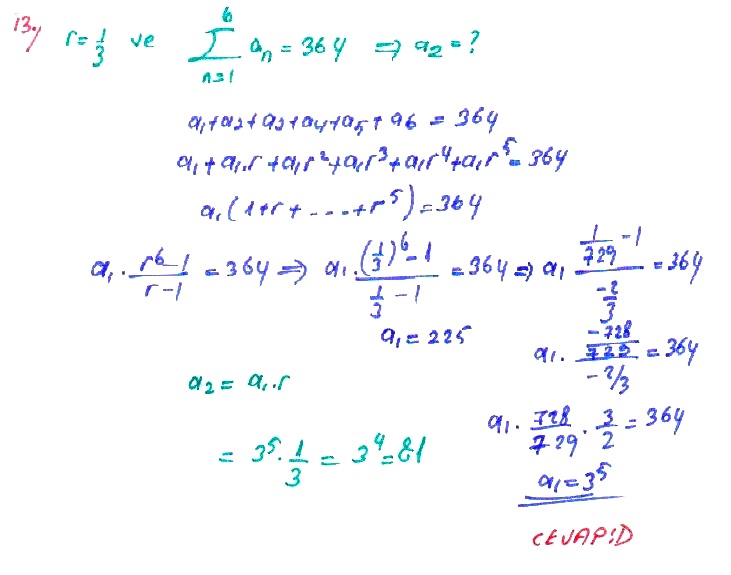 13.) r = 1/3 ve ∑_{n=1}^{6} a_n = 364 ⇒ a_2 = ?
a_1 + a_2 + a_3 + a_4 + a_5 + a_6 = 364
a_1 + a_1.r + a_1r^2 + a_1r^3 + a_1r^4 + a_1r^5 = 364
a_1(1 + r + .... + r^5) = 364
a_1 . (r^6 - 1)/(r - 1) = 364 ⇒ a_1 . ((1/3)^6 - 1)/(1/3 - 1) = 364 ⇒ a_1 (1/729 - 1)/(-2/3) = 364
a_1 = 225
a_1 . (-728/729)/(-2/3) = 364
a_2 = a_1.r
a_1 . 728/729 . 3/2 = 364
= 3^5 . 1/3 = 3^4 = 81
a_1 = 3^5
CEVAP:D